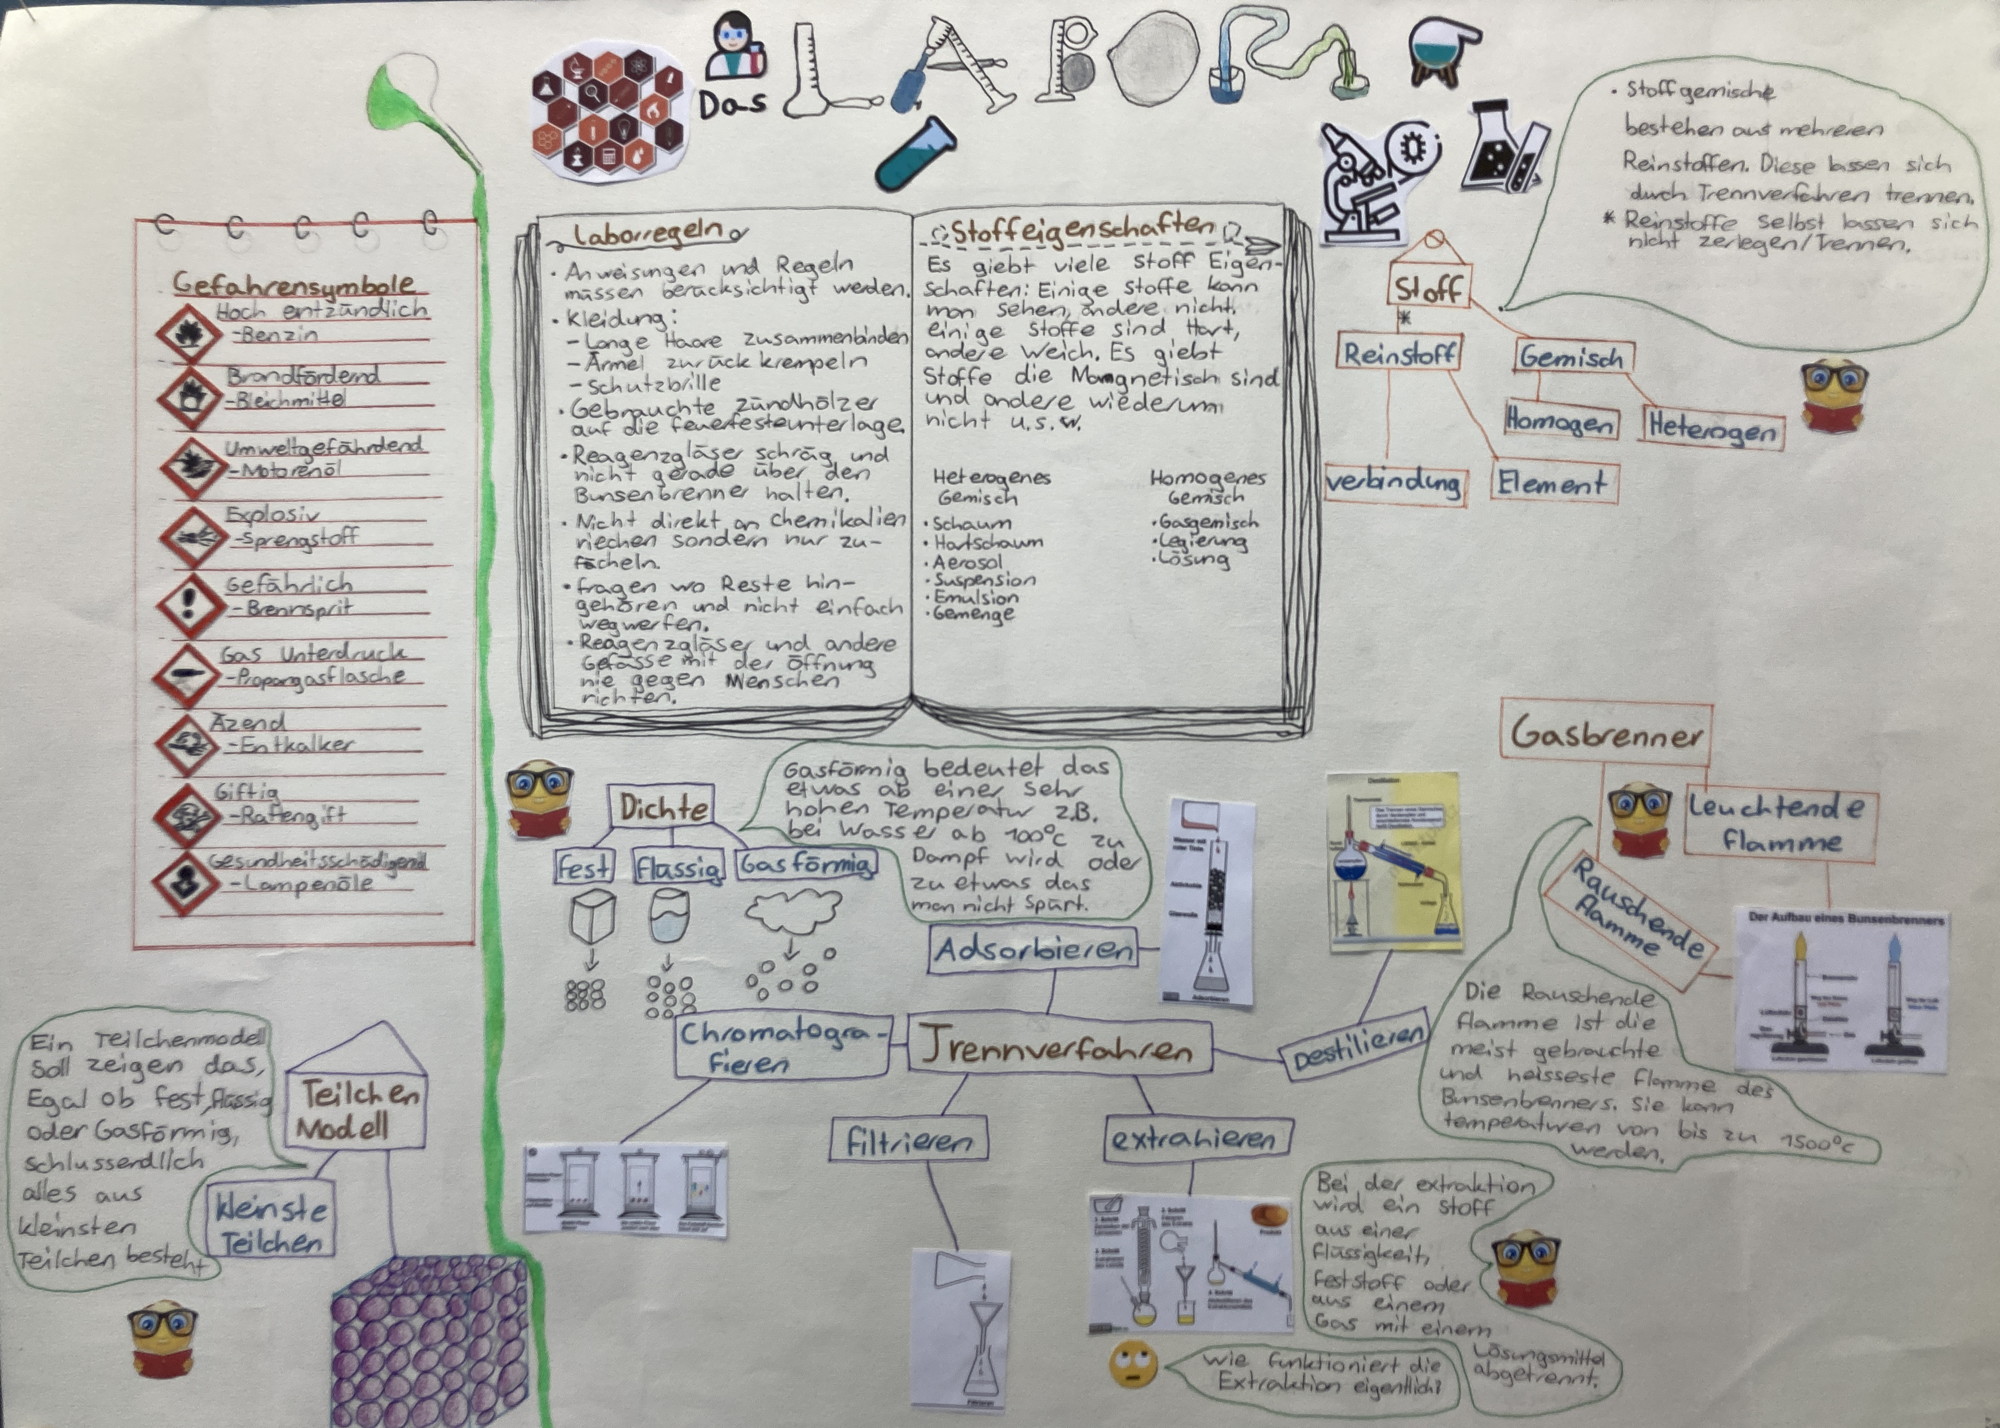 Das LABOR
Gefahrensymbole
Hoch entzündlich
-Benzin
Brandfördernd
-Bleichmittel
Umweltgefährdend
-Motorenöl
Explosiv
-Sprengstoff
Gefährlich
-Brennsprit
Gas Unterdruck
-Propangasflasche
Äzend
-Entkalker
Giftig
-Rattengift
Gesundheitsschädigend
-Lampenöle
Laborregeln
• Anweisungen und Regeln
müssen berücksichtigt werden.
• Kleidung:
- Lange Haare zusammenbinden
- Ärmel zurück krempeln
- Schutzbrille
• Gebrauchte zündhölzer
auf die feuerfesteunterlage.
• Reagenzgläser schräg und
nicht gerade über den
Bunsenbrenner halten.
• Nicht direkt an Chemikalien
riechen sondern nur zu-
fächeln.
• fragen wo Reste hin-
gehören und nicht einfach
wegwerfen.
• Reagenzgläser und andere
Gefässe mit der Öffnung
nie gegen Menschen
richten.
Stoffeigenschaften
Es giebt viele Stoff Eigen-
schaften: Einige Stoffe kann
man sehen, andere nicht.
einige Stoffe sind Hart,
andere Weich. Es giebt
Stoffe die Magnetisch sind
und andere wiederum
nicht u.s.w.
Heterogenes
Gemisch
• Schaum
• Hartschaum
• Aerosol
• Suspension
• Emulsion
• Gemenge
Homogenes
Gemisch
• Gasgemisch
• Legierung
• Lösung
• Stoffgemische
bestehen aus mehreren
Reinstoffen. Diese lassen sich
durch Trennverfahren trennen.
* Reinstoffe selbst lassen sich
nicht zerlegen/Trennen.
Stoff
*
Reinstoff
Gemisch
Homogen
Heterogen
verbindung
Element
Dichte
Fest
Flüssig
Gasförmig
Gasförmig bedeutet das
etwas ab einer sehr
hohen Temperatur z.B.
bei Wasser ab 100°C zu
Dampf wird oder
zu etwas das
man nicht spürt.
Gasbrenner
Leuchtende
flamme
Rauschende
flamme
Der Aufbau eines Bunsenbrenners
Die Rauschende
flamme ist die
meist gebrauchte
und heisseste flamme des
Bunsenbrenners. Sie kann
temperaturen von bis zu 1500°C
werden.
Trennverfahren
Adsorbieren
Adsorbieren
Chromatogra-
fieren
Destilieren
Destillation
filtrieren
Filtrieren
extrahieren
Bei der extraktion
wird ein Stoff
aus einer
flüssigkeit,
feststoff oder
aus einem
Gas mit einem
Lösungsmittel
abgetrennt.
wie funktioniert die
Extraktion eigentlich?
Teilchen
Modell
kleinste
Teilchen
Ein Teilchenmodell
soll zeigen das,
Egal ob fest, flüssig
oder Gasförmig,
schlusserdlich
alles aus
kleinsten
Teilchen besteht